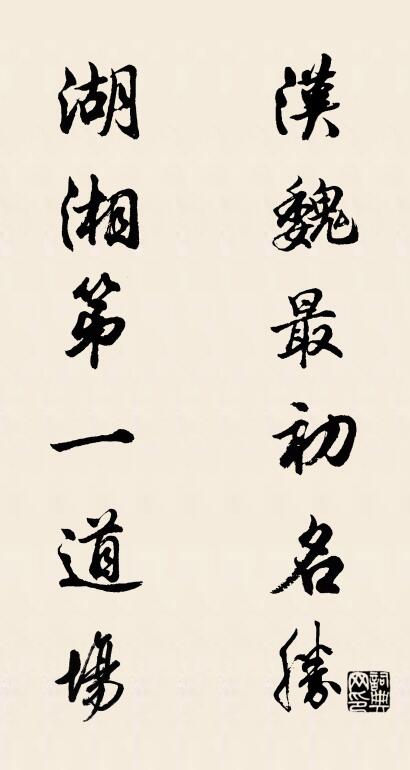 漢魏最初名勝
湖湘第一道場
詞典网印